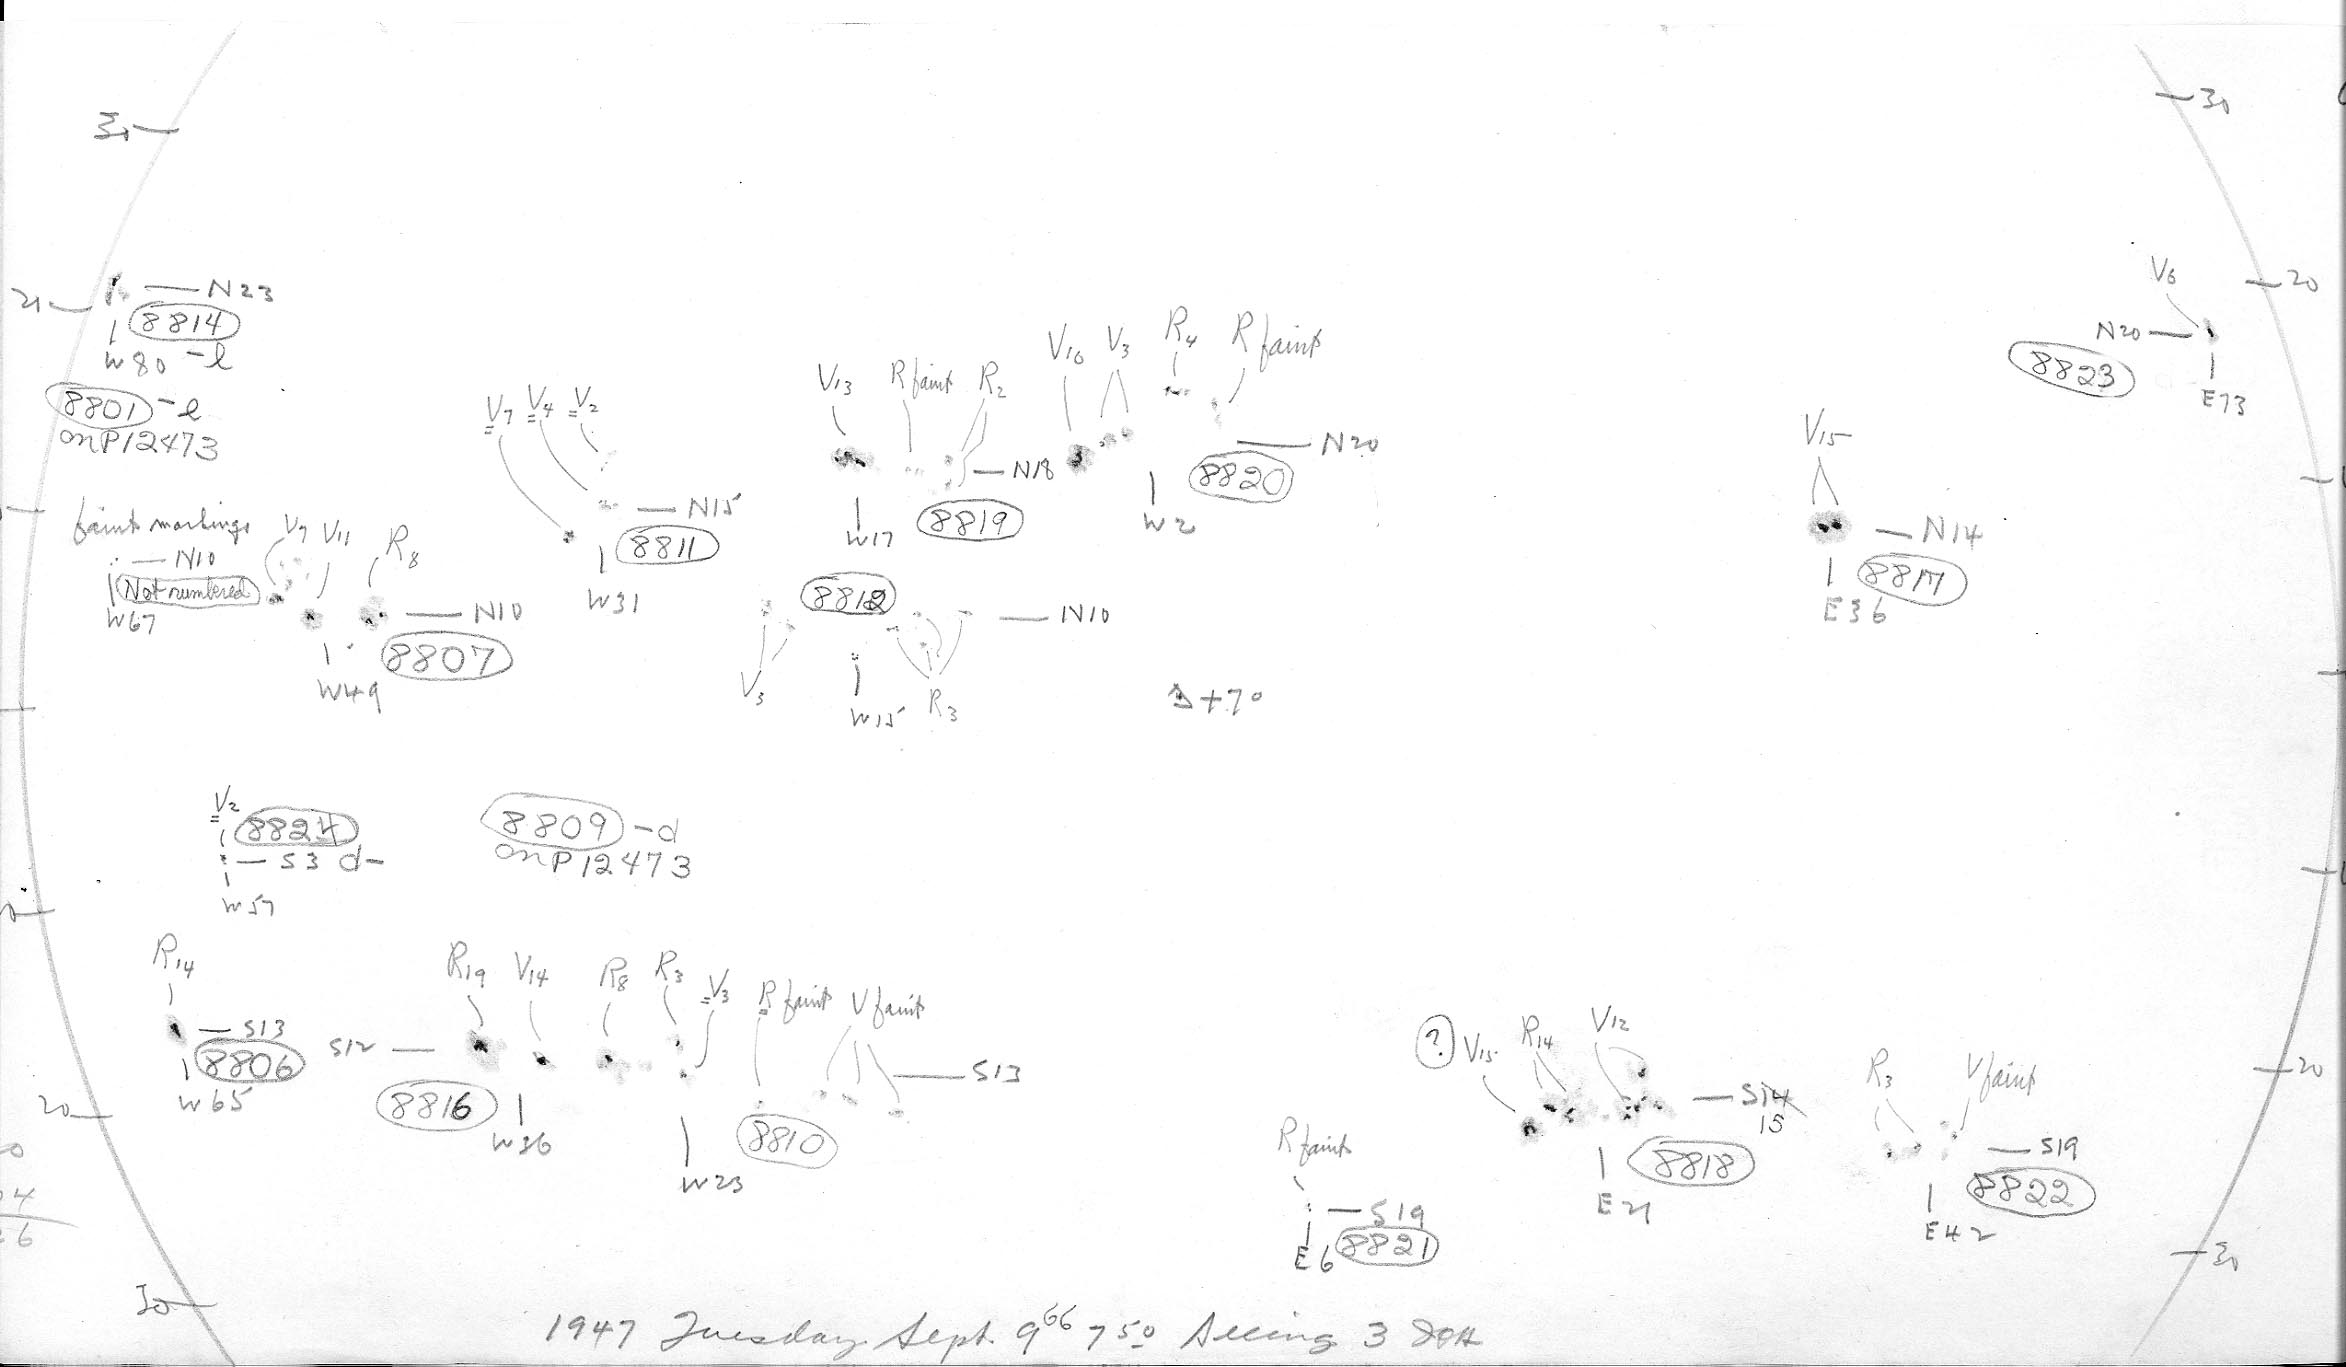 30
30
20
V6
N23
21
8814
W80 -l
N20
8823
E73
8801 -l
on P12473
V7 V4 V2
N15
8811
W31
V13 R faint R2
N18
8819
W17
V10 V3 R4 R faint
N20
8820
W2
V15
N14
8817
E36
faint markings
N10
Not numbered
W67
V7 V11 R8
N10
8807
W49
8812
N10
V3
W15
R3
+7°
V2
8824
S3 d-
W57
8809 -d
on P12473
R14
S13
8806
W65
20
R19 V14
S12
8816
W36
R8 R3 V3 R faint V faint
S13
8810
W23
? V15 R14 V12
S14
15
8818
E21
R3 V faint
S19
8822
E42
20
R faint
S19
E6 8821
4
6
30
30
1947 Tuesday Sept. 9 66 7 50 Seeing 3